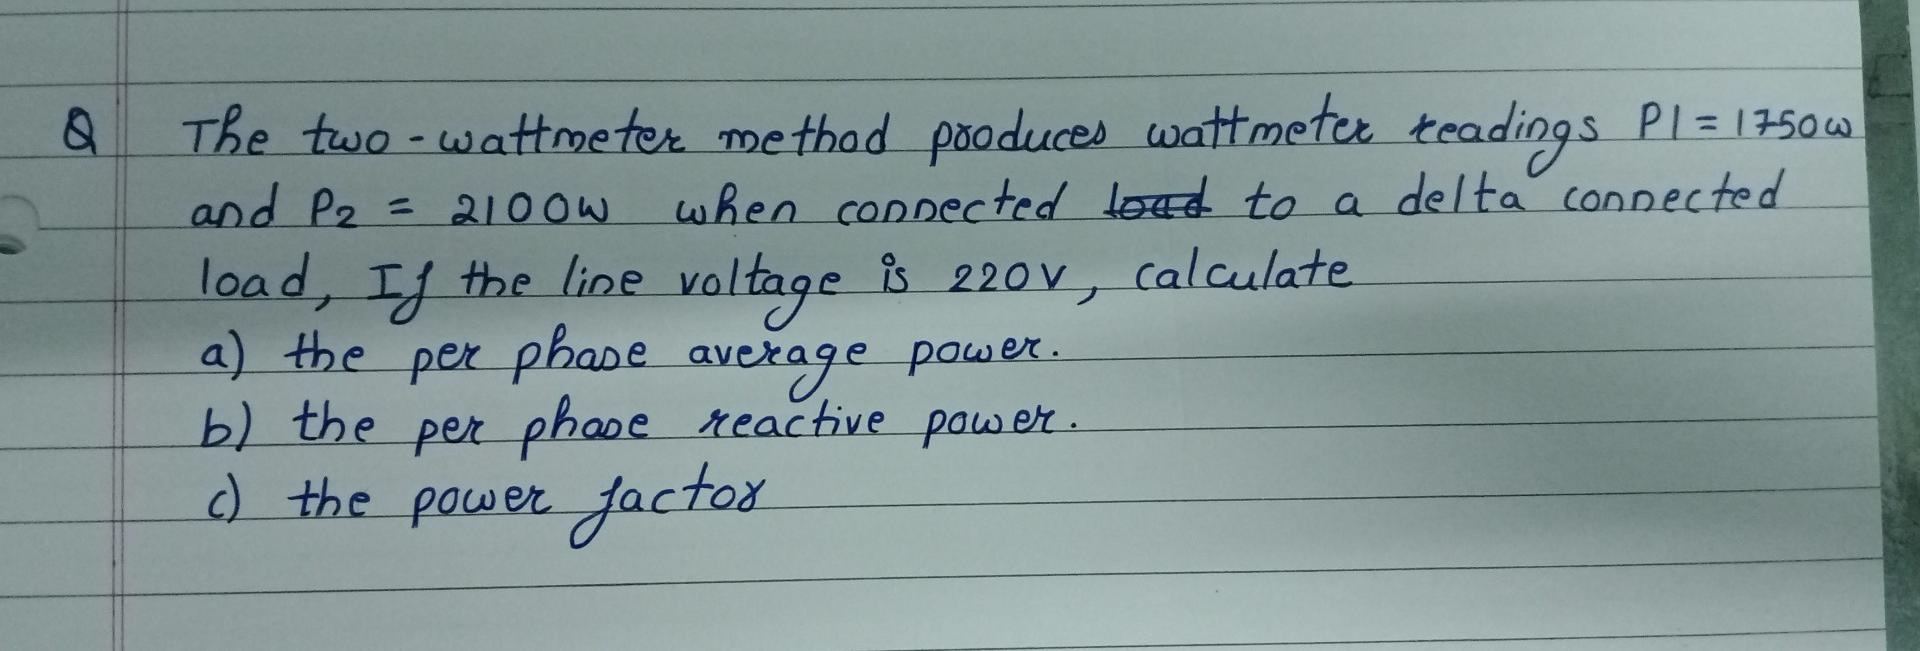 Q The two-wattmeter method produces wattmeter readings P1 = 1750w
and P2 = 2100W when connected load to a delta connected
load, If the line voltage is 220v, calculate
a) the per phase average power.
b) the per phase reactive power.
c) the power factor